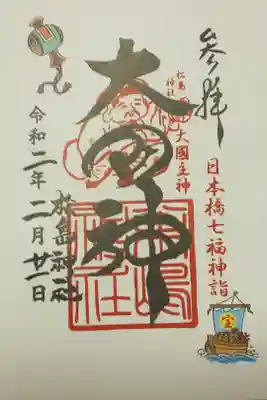 参拝
日本橋七福神詣
宝
松島神社
大國主神
大国神
松島神社
令和二年二月廿一日